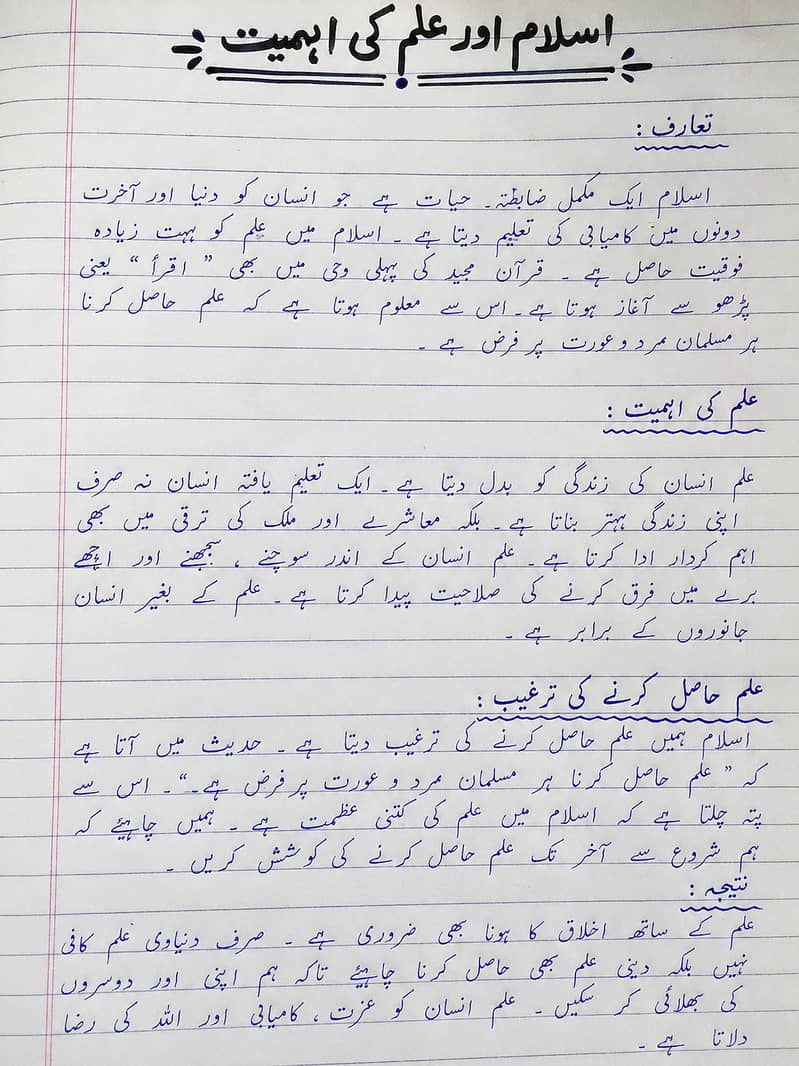 اسلام اور علم کی اہمیت
تعارف :
اسلام ایک مکمل ضابطۂ حیات ہے جو انسان کو دنیا اور آخرت
دونوں میں کامیابی کی تعلیم دیتا ہے ۔ اسلام میں علم کو بہت زیادہ
فوقیت حاصل ہے ۔ قرآن مجید کی پہلی وحی میں بھی " اقرأ " یعنی
پڑھو سے آغاز ہوتا ہے ۔ اس سے معلوم ہوتا ہے کہ علم حاصل کرنا
ہر مسلمان مرد و عورت پر فرض ہے ۔
علم کی اہمیت :
علم انسان کی زندگی کو بدل دیتا ہے ۔ ایک تعلیم یافتہ انسان نہ صرف
اپنی زندگی بہتر بناتا ہے ۔ بلکہ معاشرے اور ملک کی ترقی میں بھی
اہم کردار ادا کرتا ہے ۔ علم انسان کے اندر سوچنے ، سمجھنے اور اچھے
برے میں فرق کرنے کی صلاحیت پیدا کرتا ہے ۔ علم کے بغیر انسان
جانوروں کے برابر ہے ۔
علم حاصل کرنے کی ترغیب :
اسلام ہمیں علم حاصل کرنے کی ترغیب دیتا ہے ۔ حدیث میں آتا ہے
کہ " علم حاصل کرنا ہر مسلمان مرد و عورت پر فرض ہے ۔" ۔ اس سے
پتہ چلتا ہے کہ اسلام میں علم کی کتنی عظمت ہے ۔ ہمیں چاہیئے کہ
ہم شروع سے آخر تک علم حاصل کرنے کی کوشش کریں ۔
نتیجہ :
علم کے ساتھ اخلاق کا ہونا بھی ضروری ہے ۔ صرف دنیاوی علم کافی
نہیں بلکہ دینی علم بھی حاصل کرنا چاہیئے تاکہ ہم اپنی اور دوسروں
کی بھلائی کر سکیں ۔ علم انسان کو عزت ، کامیابی اور اللہ کی رضا
دلاتا ہے ۔